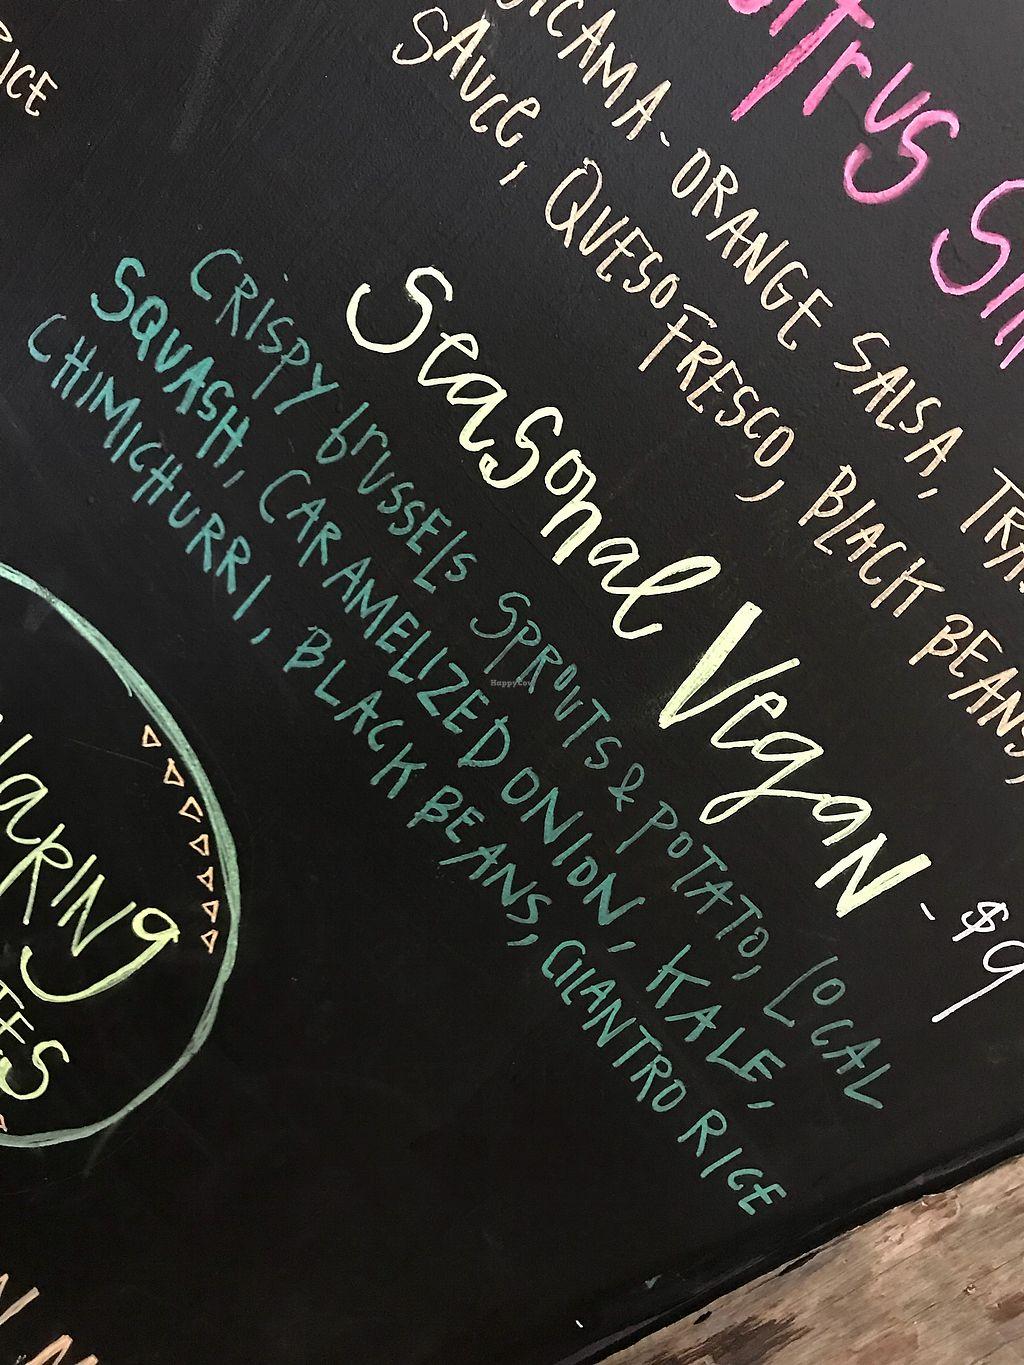 RICE
Citrus
JICAMA-ORANGE SALSA,
SAUCE, QUESO FRESCO, BLACK BEANS,
Seasonal Vegan - $9
CRISPY brussels SPROUTS & POTATO, LOCAL
SQUASH, CARAMELIZED ONION, KALE,
CHIMICHURRI, BLACK BEANS, CILANTRO RICE
HappyCow